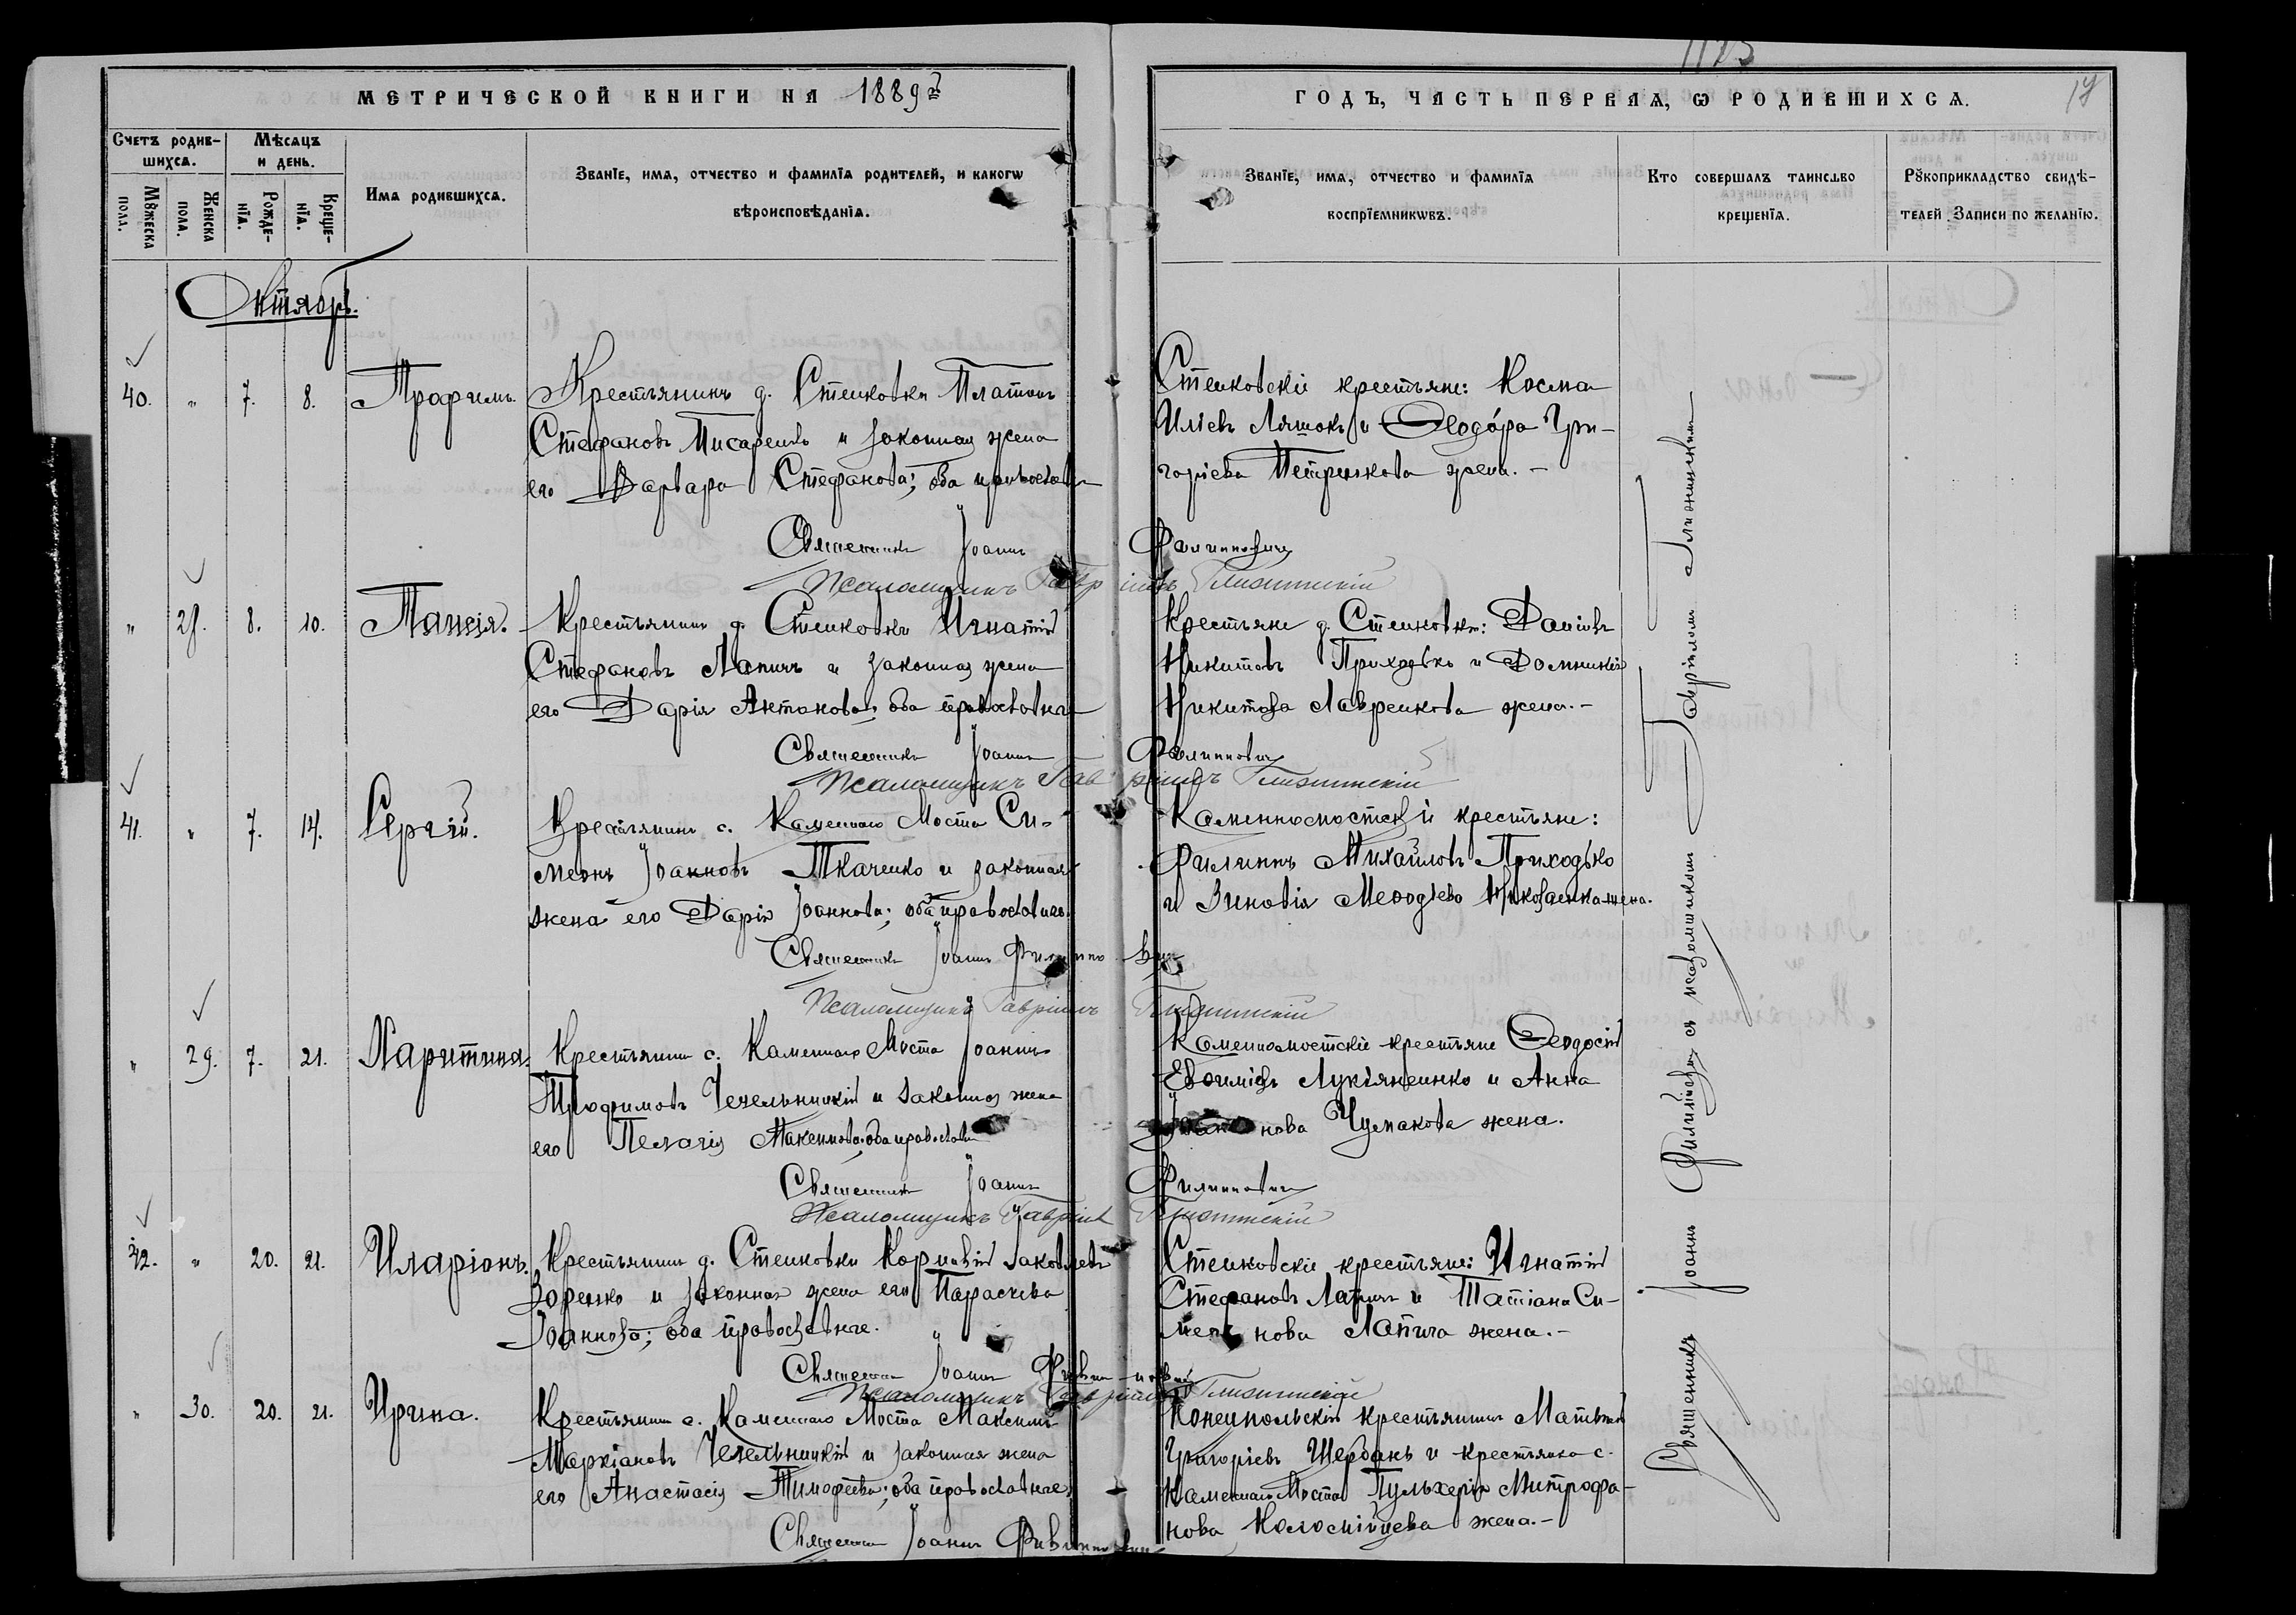 1123
МЕТРИЧЕСКОЙ КНИГИ НА 1889й
ГОДЪ, ЧАСТЬ ПЕРВАЯ, Ѡ РОДИВШИХСЯ.
Счетъ родившихся.
Мѣсяцъ и день.
Мꙋжеска пола.
Женска пола.
Рожденїя.
Крещенїя.
Имя родившихся.
Званїе, имя, отчество и фамилїя родителей, и какогѡ
вѣроисповѣданїя.
Званїе, имя, отчество и фамилїя
воспрїемникѡвъ.
Кто совершалъ таинство
крещенїя.
Рꙋкоприкладство свидѣ-
телей Записи по желанїю.
Октябрь.
40. " 7. 8. Трофимъ.
Крестьянинъ д. Стенковки Платонъ
Стефановъ Писаренко и законная жена
его Варвара Стефанова; оба православн
Стенковскіе крестьяне: Косма
Иліевъ Ляшокъ и Ѳеодора Гри-
горіева Петрикова жена. -
Священникъ Іоаннъ Филипповичъ
Псаломщикъ Гавріилъ
" 28. 8. 10. Таисія.
Крестьянинъ д. Стенковки Игнатій
Стефановъ Лапичъ и законная жена
его Дарія Антонова; оба православная
Крестьяне д. Стенковки: Даніилъ
Никитовъ Приходько и Домникія
Никитова Лавренкова жена. -
Священникъ Іоаннъ Филипповичъ
Псаломщикъ Гавріилъ
41. " 7. 14. Сергій.
Крестьянинъ с. Каменнаго Моста Си-
меонъ Іоанновъ Ткаченко и законная
жена его Дарія Іоаннова; оба православн.
Каменномостскіе крестьяне:
Филиппъ Михайловъ Приходько
и Зиновія Меѳодіева Николаенка жена.
Священникъ Іоаннъ Филипповичъ
Псаломщикъ Гавріилъ
" 29. 7. 21. Харитина.
Крестьянинъ с. Каменнаго Моста Іоаннъ
Трофимовъ Чечельницкій и законная жена
его Пелагія Максимова; оба православн
Каменномостскіе крестьяне Ѳеодосій
Евѳиміевъ Лукіяненко и Анна
нова Чумакова жена.
Священникъ Іоаннъ Филипповичъ
Псаломщикъ Гавріилъ
42. " 20. 21. Иларіонъ.
Крестьянинъ д. Стенковки Корнилій Іаковлевъ
Зоренко и законная жена его Параскева
Іоаннова; оба православные.
Стенковскіе крестьяне: Игнатій
Стефановъ Лапичъ и Татіана Си-
меонова Лапича жена. -
Священникъ Іоаннъ Филипповичъ
Псаломщикъ Гавріилъ
" 30. 20. 21. Ирина.
Крестьянинъ с. Каменнаго Моста Максимъ
Маркіановъ Чечельницкій и законная жена
его Анастасія Тимофеева; оба православные.
Конецпольскій крестьянинъ Матвей
Григоріевъ Щербань и крестьянка с.
Каменнаго Моста Пульхерія Митрофа-
нова Коломійцева жена. -
Священникъ Іоаннъ Филипповичъ
Священникъ Іоаннъ Филиповичъ съ псаломщикомъ Гавріиломъ